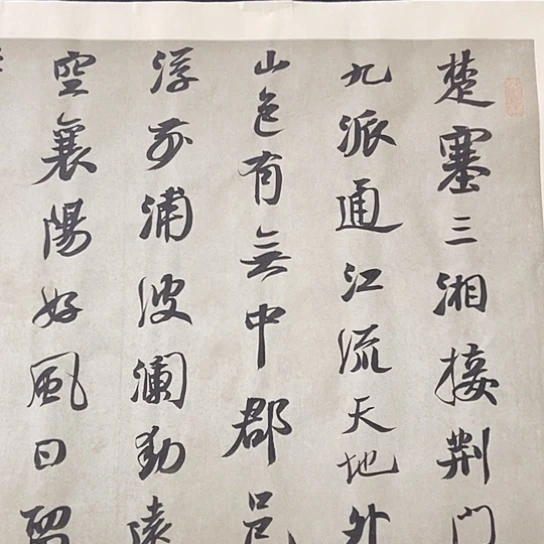 楚塞三湘接荆門
九派通江流天地外
山色有無中郡邑
浮前浦波瀾動遠
空襄陽好風日留